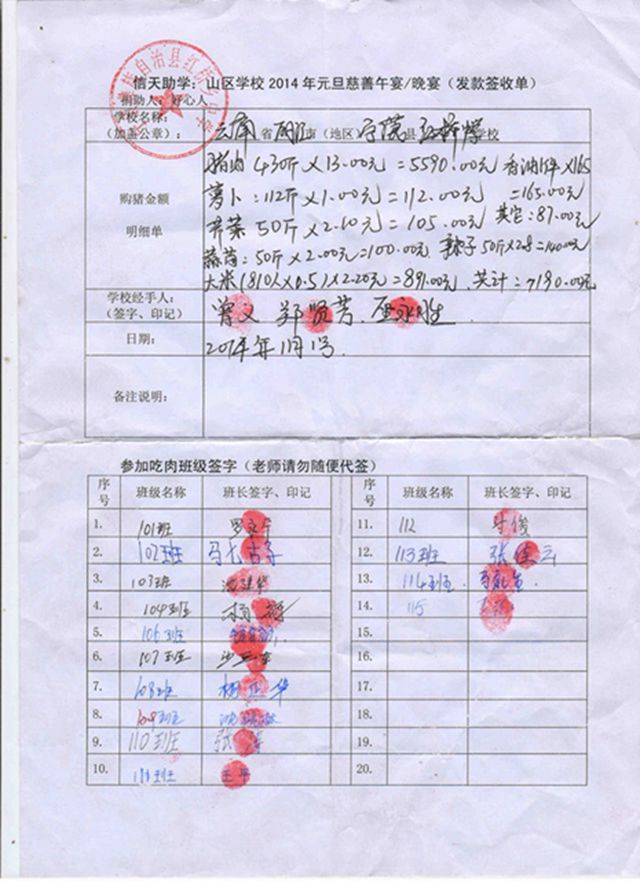 信天助学：山区学校2014年元旦慈善午宴/晚宴（发款签收单）
捐助人：好心人
学校名称：
（加盖公章）：云南省丽江市（地区）宁蒗县红桥学校
购猪金额
明细单
猪肉430斤×13.00元=5590.00元 香油1件×165
萝卜：112斤×1.00元=112.00元 =165.00元
芹菜50斤×2.10元=105.00元 其它：87.00元
50斤×2.00元=100.00元. 辣子50斤×2.8=140.00元
大米(810人×0.5)×2.20元=891.00元. 共计：7190.00元
学校经手人：
（签字、印记）
曾文 郑贤芳
日期：
2014年1月1号
备注说明：
参加吃肉班级签字（老师请勿随便代签）
序号 班级名称 班长签字、印记 序号 班级名称 班长签字、印记
1. 101班 11. 112 俊
2. 102班 12. 113班 张 云
3. 103班 13. 114班
4. 104班 杨 14. 115
5. 106班 15.
6. 107班 16.
7. 108班 杨正华 17.
8. 109班 18.
9. 110班 张 19.
10. 111班 王平 20.